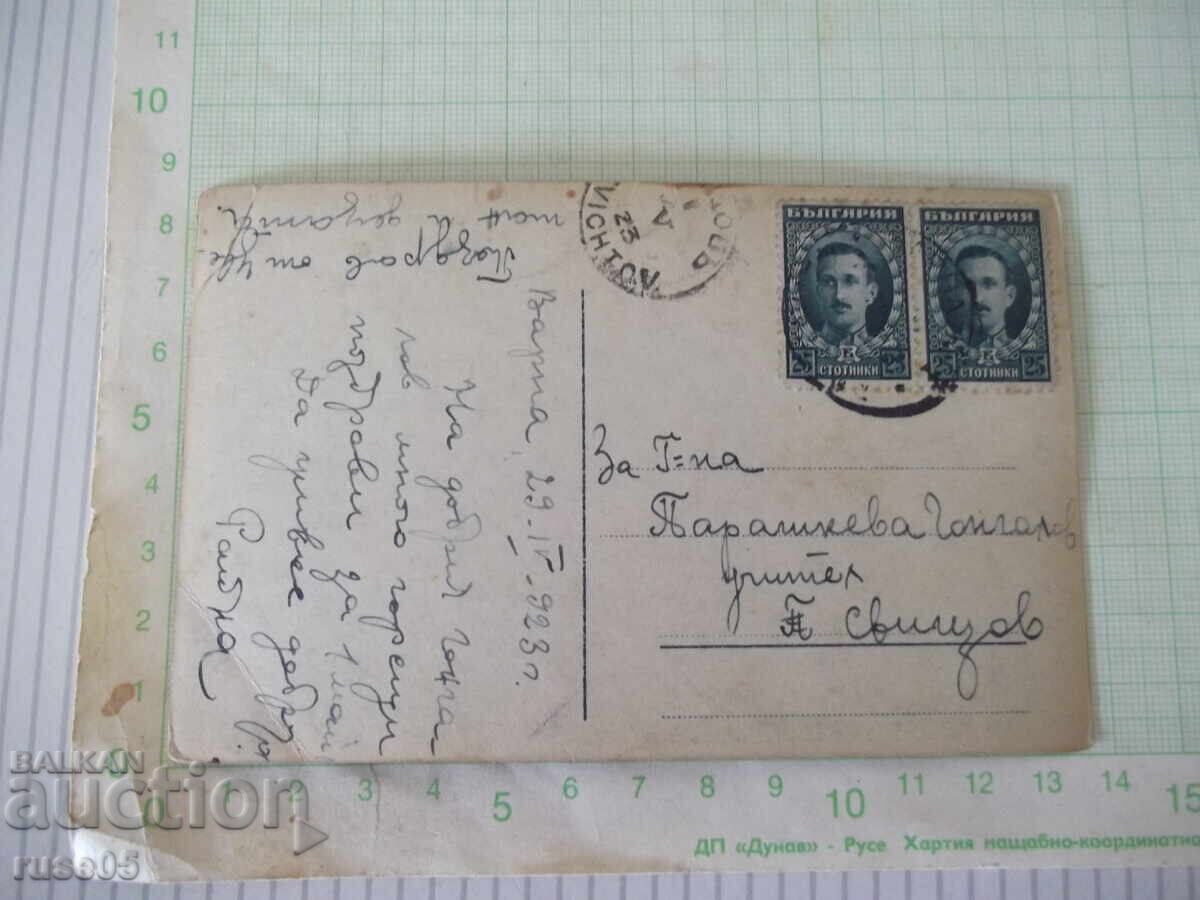 11
10
9
8
7
6
5
4
3
2
1
0
Поздрав от
и децата.
Варна, 29-IV-923 г.
На добрия Гонга
лов много горещи
поздрави за 1 май
Да живее
Райна
VICHTOV
23
V
БЪЛГАРИЯ
25 СТОТИНКИ 25
БЪЛГАРИЯ
25 СТОТИНКИ 25
За Г-на
Парашкева Гонгалов
учител
Свищов
1 2 3 4 5 6 7 8 9 10 11 12 13 14 15
ДП «Дунав» - Русе Хартия мащабно-координатна
BALKAN
auction
ruse05